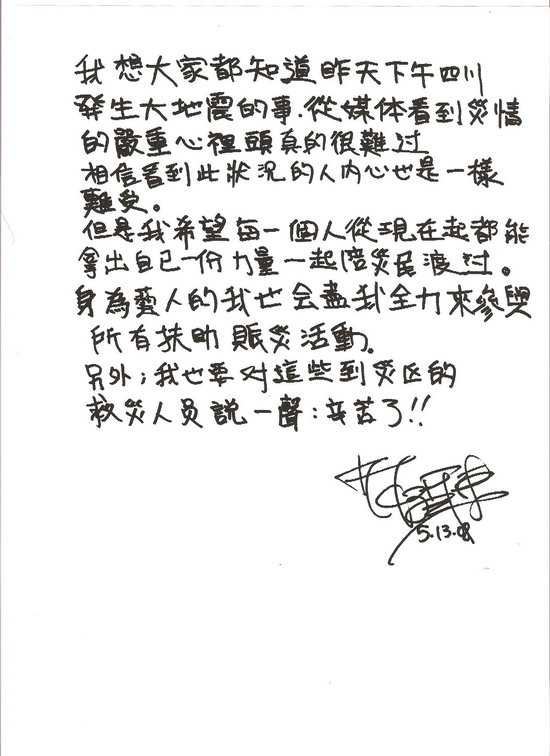 我想大家都知道昨天下午四川
發生大地震的事.從媒体看到災情
的嚴重心裡頭真的很難过
相信看到此狀况的人內心也是一樣
難受。
但是我希望每一個人從現在起都能
拿出自己一份力量一起陪災民渡过。
身為藝人的我也会盡我全力來參與
所有扶助賑災活動。
另外;我也要对這些到災区的
救災人员說一聲:辛苦了!!
5.13.08